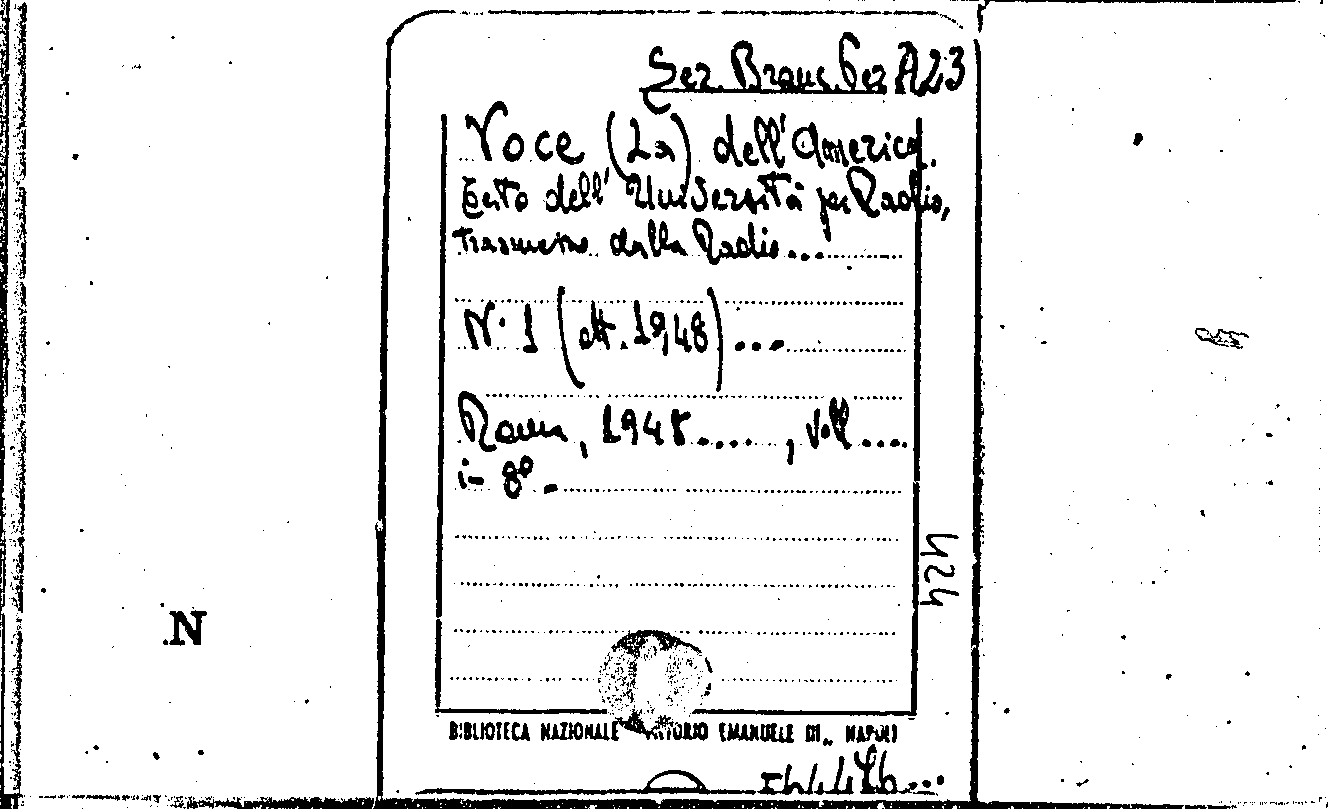 Sez. Branc. Per A23
Voce (La) dell'America.
Testo dell'Università per Radio,
trasmesse dalla Radio...
N. 1 (ott. 1948) ...
Roma, 1948...., voll....
in- 8°.
424
N
BIBLIOTECA NAZIONALE VITTORIO EMANUELE III„ NAPOLI